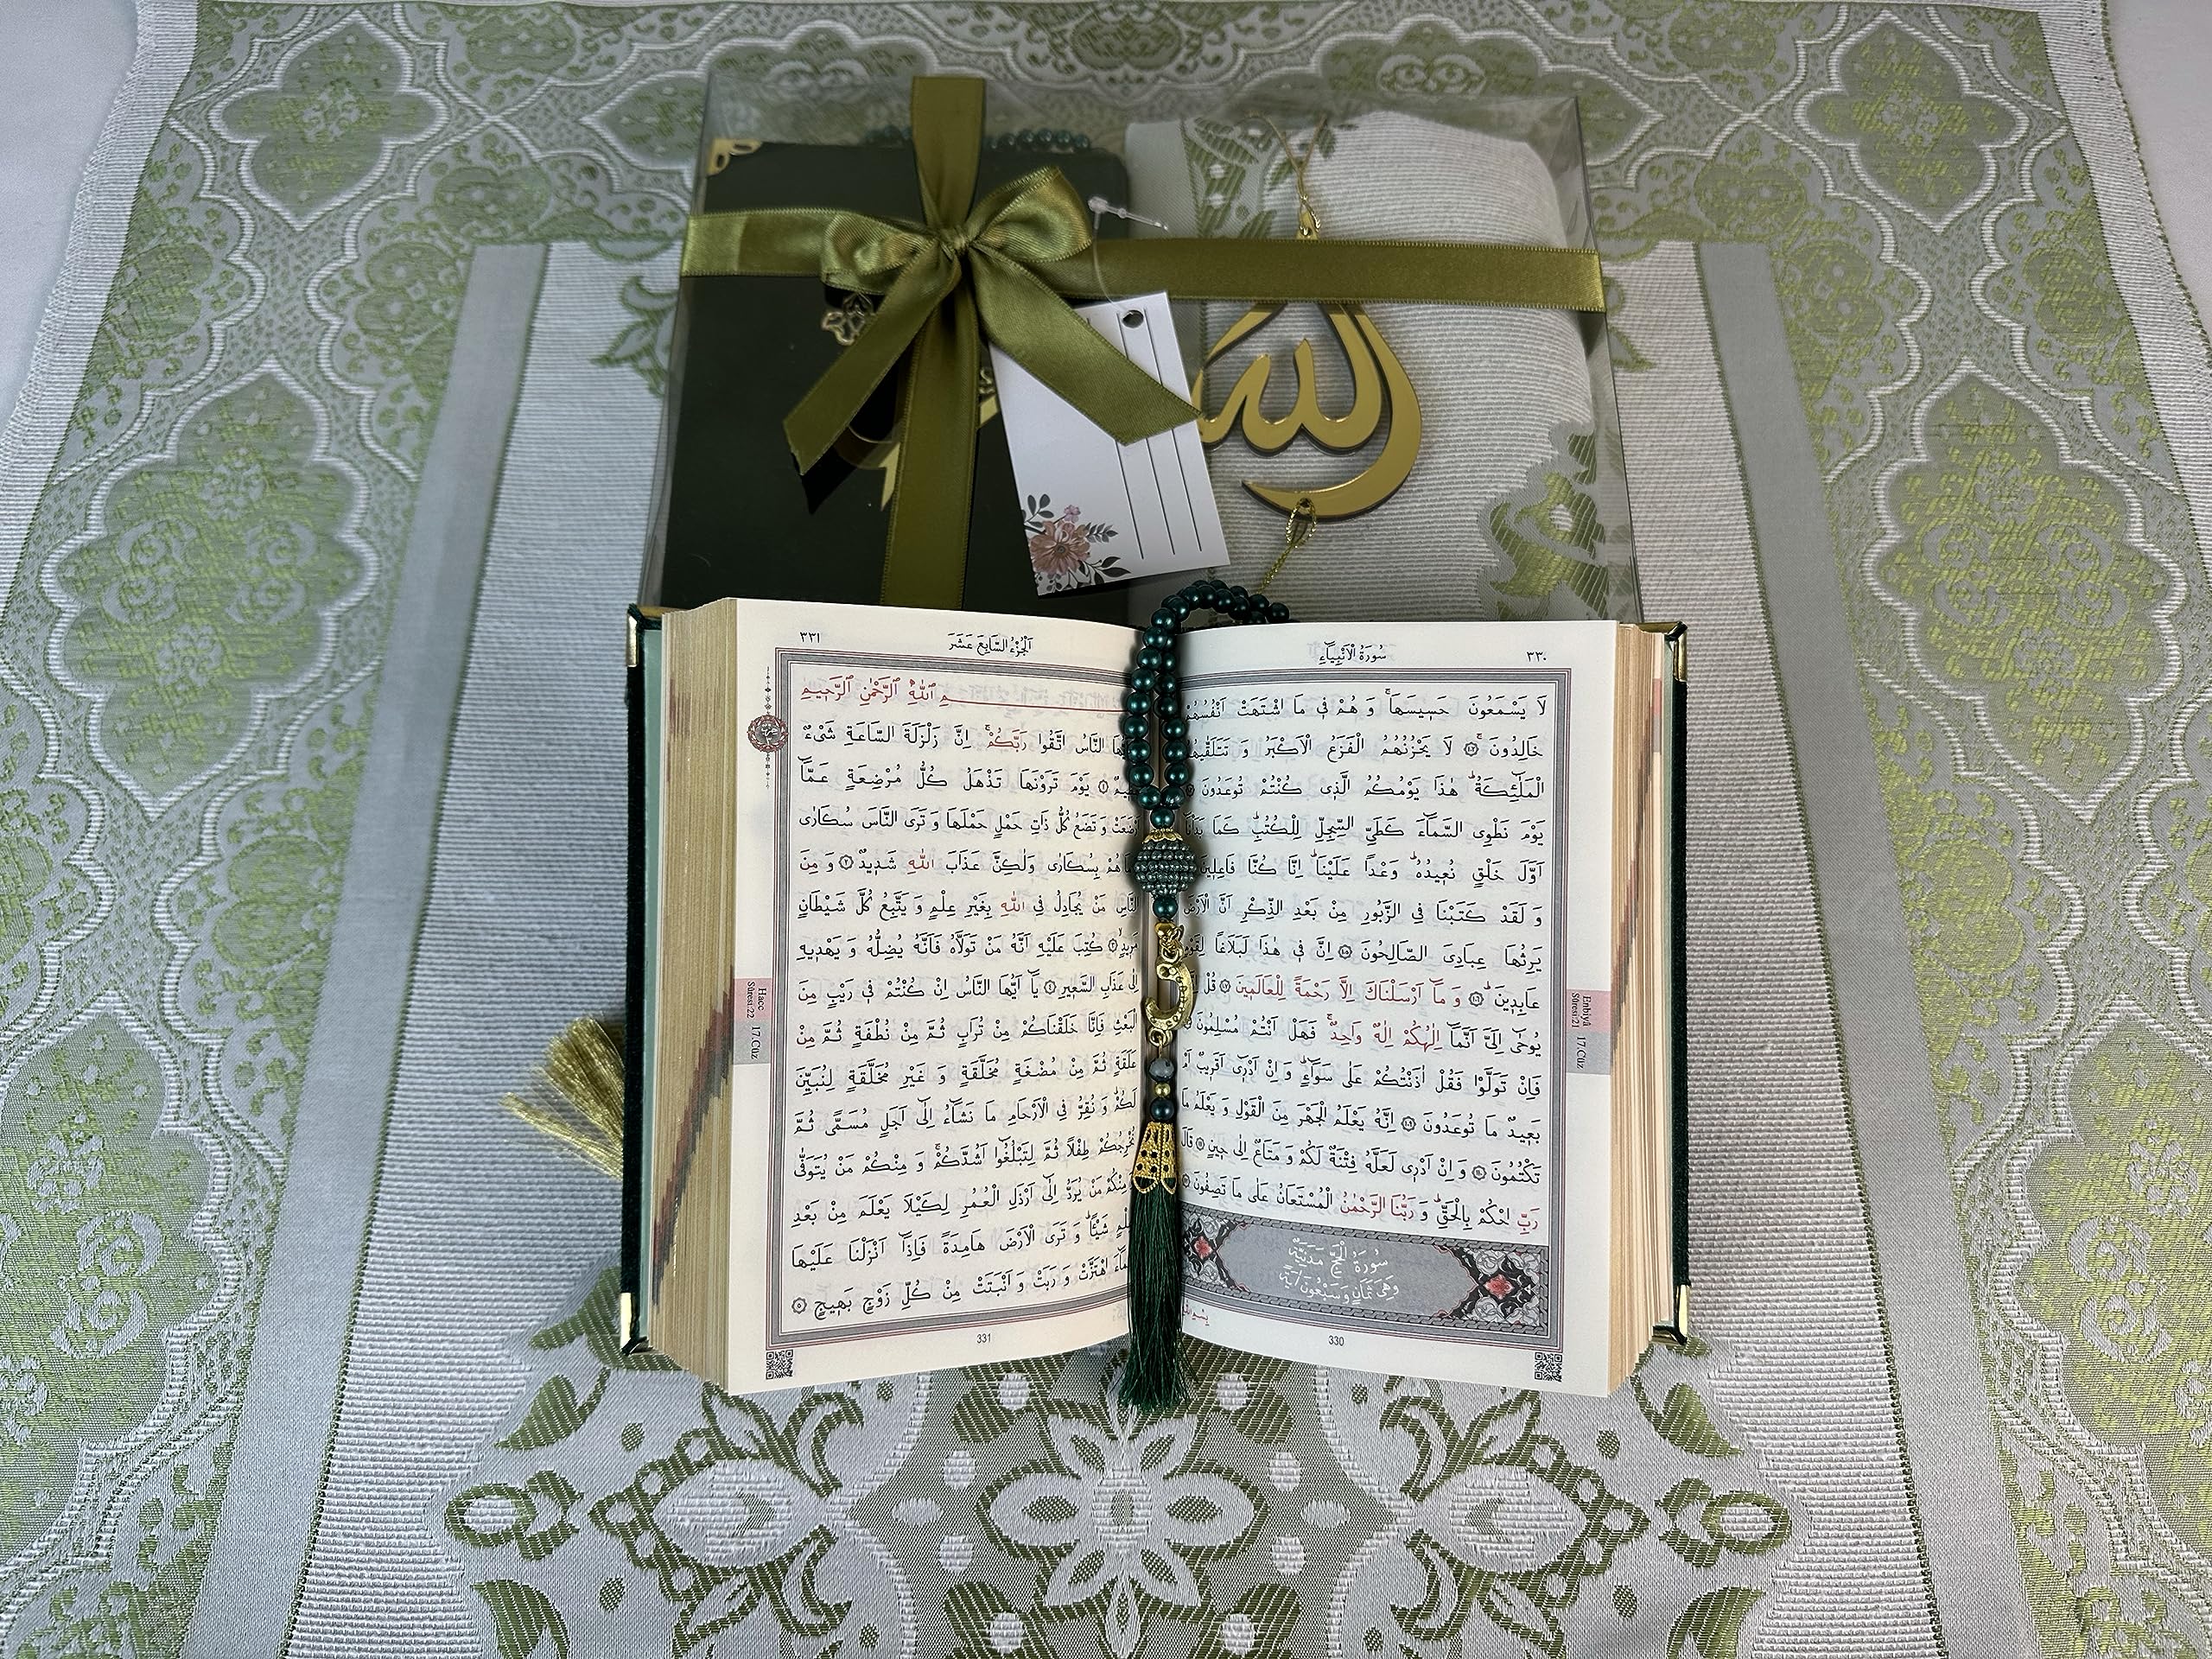 الله
سُورَةُ الْاَنْبِيَاءِ
٣٣٠
لَا يَسْمَعُونَ حَسِيسَهَاۚ وَ هُمْ فِى مَا اشْتَهَتْ اَنْفُسُهُمْ
خَالِدُونَۚ ﴿١٠٢﴾ لَا يَحْزُنُهُمُ الْفَزَعُ الْاَكْبَرُ وَ تَتَلَقّٰيهُمُ
الْمَلٰٓئِكَةُۜ هٰذَا يَوْمُكُمُ الَّذِى كُنْتُمْ تُوعَدُونَ
يَوْمَ نَطْوِى السَّمَٓاءَ كَطَىِّ السِّجِلِّ لِلْكُتُبِۜ كَمَا بَدَأْنَٓا
اَوَّلَ خَلْقٍ نُعِيدُهُۜ وَعْدًا عَلَيْنَاۜ اِنَّا كُنَّا فَاعِلِينَ
وَ لَقَدْ كَتَبْنَا فِى الزَّبُورِ مِنْ بَعْدِ الذِّكْرِ اَنَّ الْاَرْضَ
يَرِثُهَا عِبَادِىَ الصَّالِحُونَ ﴿١٠٥﴾ اِنَّ فِى هٰذَا لَبَلَاغًا لِقَوْمٍ
عَابِدِينَۜ ﴿١٠٦﴾ وَ مَٓا اَرْسَلْنَاكَ اِلَّا رَحْمَةً لِلْعَالَمِينَ ﴿١٠٧﴾ قُلْ
يُوحٰٓى اِلَىَّ اَنَّمَٓا اِلٰهُكُمْ اِلٰهٌ وَاحِدٌۚ فَهَلْ اَنْتُمْ مُسْلِمُونَ
فَاِنْ تَوَلَّوْا فَقُلْ اٰذَنْتُكُمْ عَلٰى سَوَٓاءٍۜ وَ اِنْ اَدْرِٓى اَقَرِيبٌ اَمْ
بَعِيدٌ مَا تُوعَدُونَ ﴿١٠٩﴾ اِنَّهُ يَعْلَمُ الْجَهْرَ مِنَ الْقَوْلِ وَ يَعْلَمُ مَا
تَكْتُمُونَ ﴿١١٠﴾ وَ اِنْ اَدْرِى لَعَلَّهُ فِتْنَةٌ لَكُمْ وَ مَتَاعٌ اِلٰى حِينٍ ﴿١١١﴾ قَالَ
رَبِّ احْكُمْ بِالْحَقِّۜ وَ رَبُّنَا الرَّحْمٰنُ الْمُسْتَعَانُ عَلٰى مَا تَصِفُونَ
سُورَةُ الْحَجِّ مَدَنِيَّةٌ
وَهِىَ ثَمَانٍ وَسَبْعُونَ اٰيَةً
330
Enbiyâ
Sûresi:21
17.Cüz
اَلْجُزْءُ السَّابِعَ عَشَرَ
٣٣١
ـمِ اللّٰهِ الرَّحْمٰنِ الرَّحِيمِ
النَّاسُ اتَّقُوا رَبَّكُمْۚ اِنَّ زَلْزَلَةَ السَّاعَةِ شَىْءٌ
﴿١﴾ يَوْمَ تَرَوْنَهَا تَذْهَلُ كُلُّ مُرْضِعَةٍ عَمَّٓا
اَرْضَعَتْ وَ تَضَعُ كُلُّ ذَاتِ حَمْلٍ حَمْلَهَا وَ تَرَى النَّاسَ سُكَارٰى
هُمْ بِسُكَارٰى وَلٰكِنَّ عَذَابَ اللّٰهِ شَدِيدٌ ﴿٢﴾ وَ مِنَ
النَّاسِ مَنْ يُجَادِلُ فِى اللّٰهِ بِغَيْرِ عِلْمٍ وَ يَتَّبِعُ كُلَّ شَيْطَانٍ
مَرِيدٍ ﴿٣﴾ كُتِبَ عَلَيْهِ اَنَّهُ مَنْ تَوَلَّاهُ فَاَنَّهُ يُضِلُّهُ وَ يَهْدِيهِ
اِلٰى عَذَابِ السَّعِيرِ ﴿٤﴾ يَٓا اَيُّهَا النَّاسُ اِنْ كُنْتُمْ فِى رَيْبٍ مِنَ
الْبَعْثِ فَاِنَّا خَلَقْنَاكُمْ مِنْ تُرَابٍ ثُمَّ مِنْ نُطْفَةٍ ثُمَّ مِنْ
عَلَقَةٍ ثُمَّ مِنْ مُضْغَةٍ مُخَلَّقَةٍ وَ غَيْرِ مُخَلَّقَةٍ لِنُبَيِّنَ
لَكُمْۜ وَ نُقِرُّ فِى الْاَرْحَامِ مَا نَشَٓاءُ اِلٰٓى اَجَلٍ مُسَمًّى ثُمَّ
نُخْرِجُكُمْ طِفْلًا ثُمَّ لِتَبْلُغُٓوا اَشُدَّكُمْۚ وَ مِنْكُمْ مَنْ يُتَوَفّٰى
مِنْكُمْ مَنْ يُرَدُّ اِلٰٓى اَرْذَلِ الْعُمُرِ لِكَيْلَا يَعْلَمَ مِنْ بَعْدِ
عِلْمٍ شَيْـًٔاۜ وَ تَرَى الْاَرْضَ هَامِدَةً فَاِذَٓا اَنْزَلْنَا عَلَيْهَا
اهْتَزَّتْ وَ رَبَتْ وَ اَنْبَتَتْ مِنْ كُلِّ زَوْجٍ بَهِيجٍ ﴿٥﴾
331
Hacc
Sûresi:22
17.Cüz